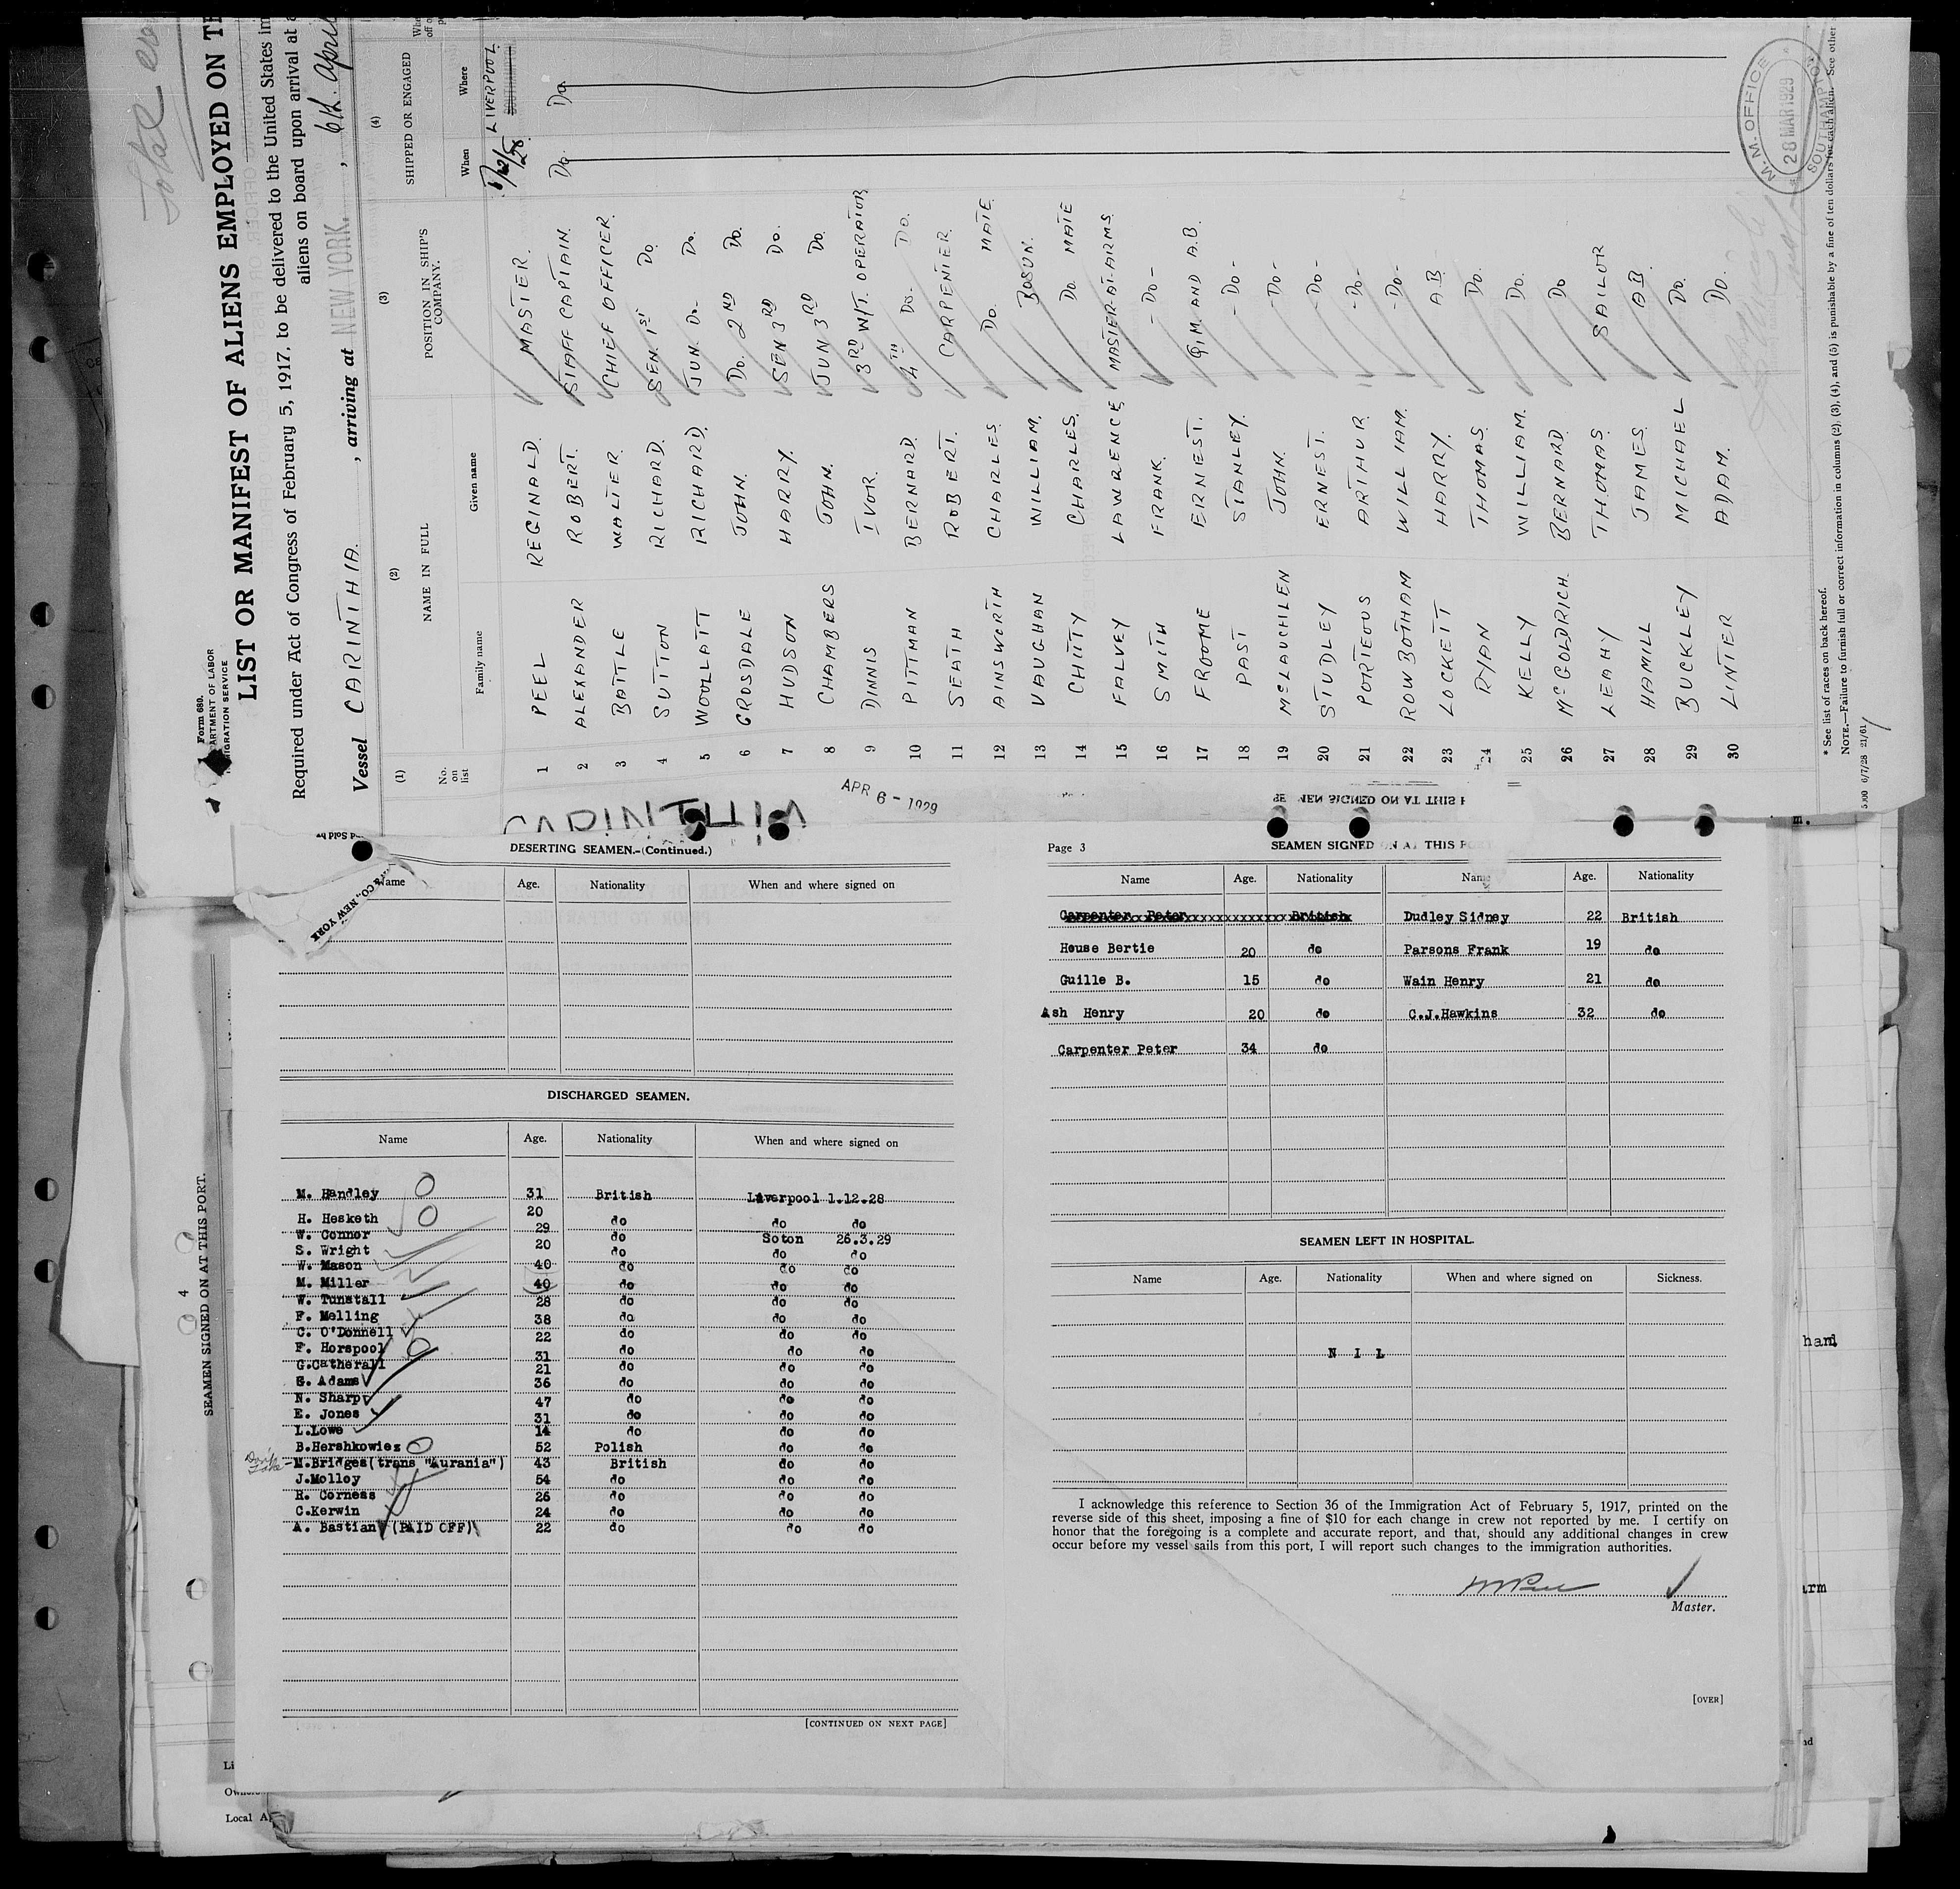 Form 680.
LIST OR MANIFEST OF ALIENS EMPLOYED ON
Required under Act of Congress of February 5, 1917, to be delivered to the United States
aliens on board upon arrival at
Vessel CARINTHIA. , arriving at NEW YORK. , 6th. April
(1) (2) (3) (4)
No. on list NAME IN FULL POSITION IN SHIP'S COMPANY. SHIPPED OR ENGAGED
Family name Given name When Where
1 PEEL REGINALD. MASTER. 1/12/28 LIVERPOOL
2 ALEXANDER ROBERT. STAFF CAPTAIN. Do. Do.
3 BATTLE WALTER. CHIEF OFFICER.
4 SUTTON RICHARD. SEN. 1ST Do.
5 WOOLLATT RICHARD. JUN. Do. Do.
6 GROSDALE JOHN. Do. 2ND Do.
7 HUDSON HARRY. SEN 3RD Do.
8 CHAMBERS JOHN. JUN 3RD Do.
9 DINNIS IVOR. 3RD W/T. OPERATOR
10 PITTMAN BERNARD. 4TH Do. Do.
11 SEATH ROBERT. CARPENTER.
12 AINSWORTH CHARLES. Do. MATE.
13 VAUGHAN WILLIAM. BOSUN.
14 CHITTY CHARLES. Do MATE
15 FALVEY LAWRENCE MASTER-AT-ARMS.
16 SMITH FRANK. -Do-
17 FROOME ERNEST. Q.M. AND A.B.
18 PAST STANLEY. -Do-
19 McLAUCHLEN JOHN. -Do-
20 STUDLEY ERNEST. -Do-
21 PORTEOUS ARTHUR. -Do-
22 ROWBOTHAM WILLIAM. -Do-
23 LOCKETT HARRY. A.B
24 RYAN THOMAS. Do.
25 KELLY WILLIAM. Do.
26 McGOLDRICH. BERNARD. Do
27 LEAHY THOMAS. SAILOR
28 HAMILL JAMES. A.B.
29 BUCKLEY MICHAEL Do.
30 LINTER ADAM. Do.
M.M. OFFICE
28 MAR 1929
SOUTHAMPTON
* See list of races on back hereof.
NOTE.—Failure to furnish full or correct information in columns (2), (3), (4), and (5) is punishable by a fine of ten dollars for each alien. See other
APR 6 - 1929
CARINTHIA
& CO., NEW YORK
DESERTING SEAMEN.-(Continued.)
Name Age. Nationality When and where signed on
DISCHARGED SEAMEN.
Name Age. Nationality When and where signed on
M. Handley 31 British Liverpool 1.12.28
H. Hesketh 20 do do do
W. Connor 29 do Soton 26.3.29
S. Wright 20 do do do
W. Mason 40 do do do
M. Miller 40 do do do
W. Tunstall 28 do do do
F. Melling 38 do do do
C. O'Donnell 22 do do do
F. Horspool 31 do do do
G.Catherall 21 do do do
G. Adams 36 do do do
N. Sharp 47 do do do
E. Jones 31 do do do
L.Lowe 14 do do do
B.Hershkowiez 52 Polish do do
M.Bridges(trans "Aurania") 43 British do do
J.Molloy 54 do do do
R. Corness 26 do do do
C.Kerwin 24 do do do
A. Bastian (PAID OFF) 22 do do do
[CONTINUED ON NEXT PAGE]
Page 3 SEAMEN SIGNED ON AT THIS
Name Age. Nationality Name Age. Nationality
Carpenter Peter British Dudley Sidney 22 British
House Bertie 20 do Parsons Frank 19 do
Guille B. 15 do Wain Henry 21 do
Ash Henry 20 do C.J.Hawkins 32 do
Carpenter Peter 34 do
SEAMEN LEFT IN HOSPITAL.
Name Age. Nationality When and where signed on Sickness.
N I L
I acknowledge this reference to Section 36 of the Immigration Act of February 5, 1917, printed on the
reverse side of this sheet, imposing a fine of $10 for each change in crew not reported by me. I certify on
honor that the foregoing is a complete and accurate report, and that, should any additional changes in crew
occur before my vessel sails from this port, I will report such changes to the immigration authorities.
Master.
[OVER]
4
SEAMEN SIGNED ON AT THIS PORT.
Local